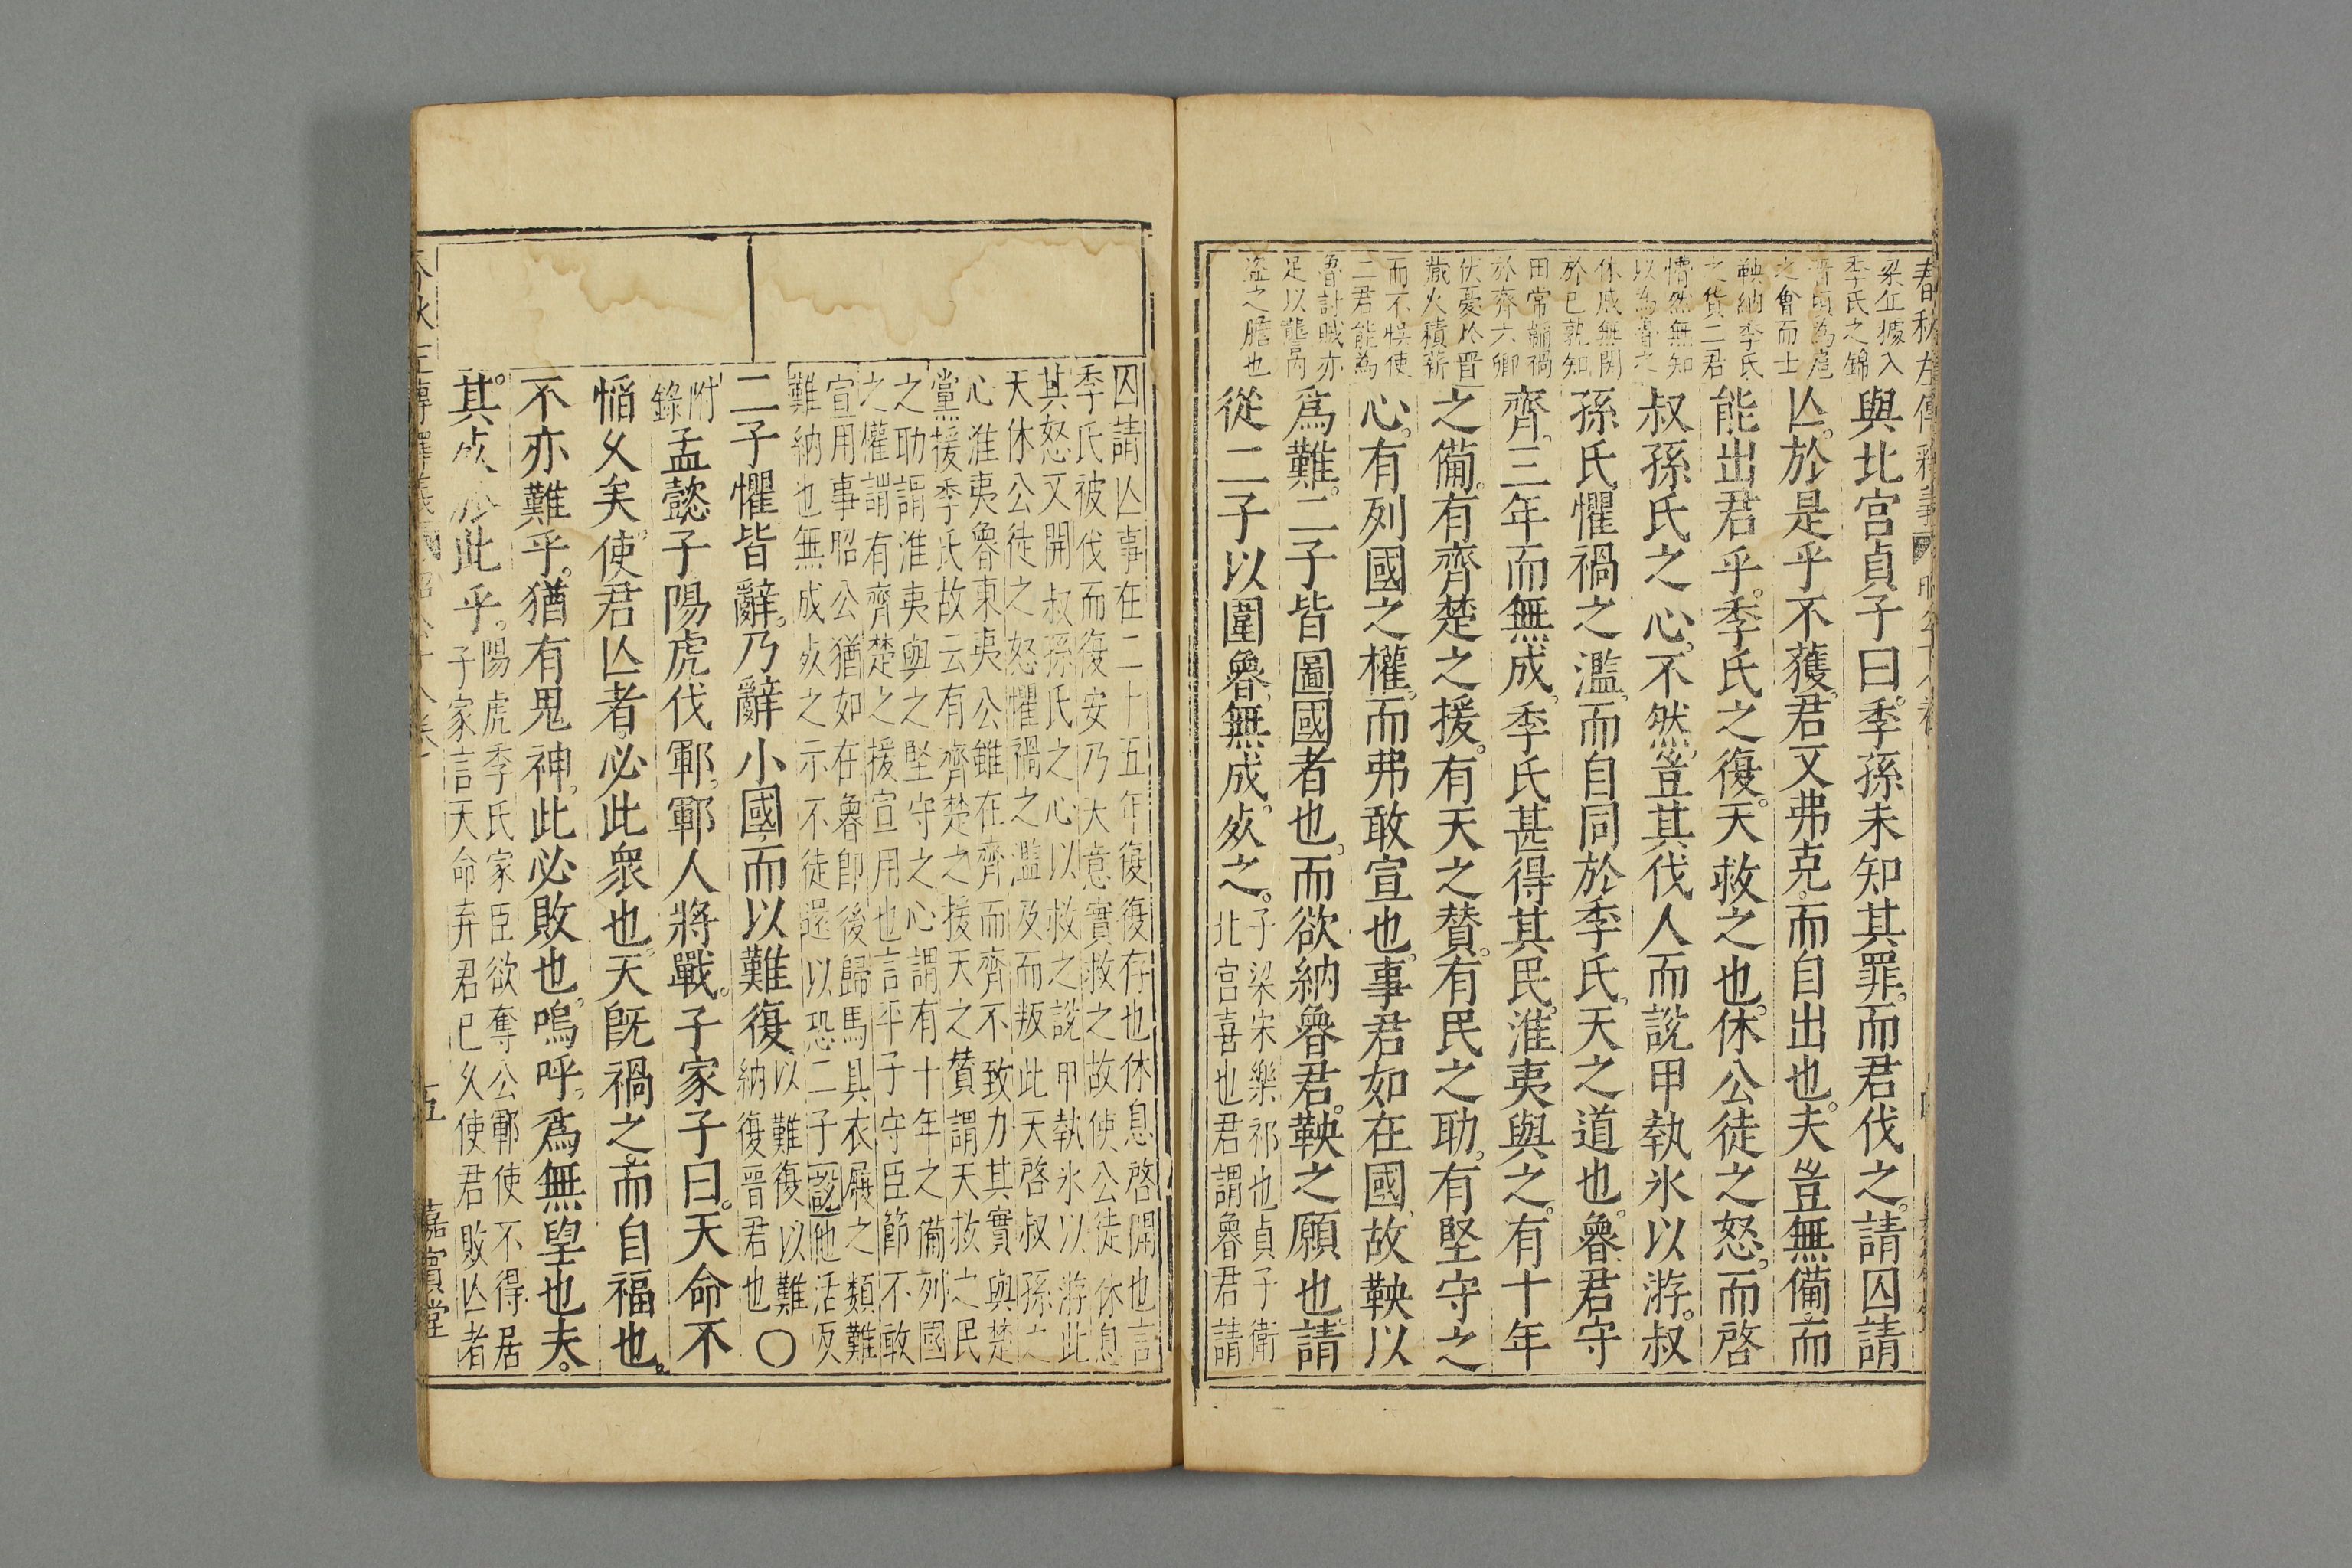 與北宮貞子曰季孫未知其罪而君伐之請囚請
亾於是乎不獲君又弗克而自出也夫豈無備而
能出君乎季氏之復天救之也休公徒之怒而啓
叔孫氏之心不然豈其伐人而說甲執氷以游叔
孫氏懼禍之濫而自同於季氏天之道也魯君守
齊三年而無成季氏甚得其民淮夷與之有十年
之備有齊楚之援有天之賛有民之助有堅守之
心有列國之權而弗敢宣也事君如在國故鞅以
爲難二子皆圖國者也而欲納魯君鞅之願也請
從二子以圍魯無成死之
子梁宋樂祁也貞子衛
北宮喜也君謂魯君請
梁丘據入
季氏之錦
晉頃為扈
之會而士
鞅納季氏
之貨二君
懵然無知
以為魯之
休戚無関
於已孰知
田常編禍
於齊六卿
伏憂於晋
蔵火積薪
而不悞使
二君能為
魯討賊亦
足以讋內
盗之膽也
囚請亾事在二十五年復復存也休息啓開也言
季氏被伐而復安乃大意實救之故使公徒休息
其怒又開叔孫氏之心以救之說甲執氷以游此
天休公徒之怒懼禍之濫及而叛此天啓叔孫之
心淮夷魯東夷公雖在齊而齊不致力其實與楚
黨援季氏故云有齊楚之援天之賛謂天救之民
之助謂淮夷與之堅守之心謂有十年之備列國
之懽謂有齊楚之援宣用也言平子守臣節不敢
宣用事昭公猶如在魯卽後歸馬具衣屨之類難
難納也無成死之示不徒還以恐二子
二子懼皆辭乃辭小國而以難復
以難復以難
納復晋君也
〇
附
錄
孟懿子陽虎伐鄆鄆人將戰子家子曰天命不
慆久矣使君亾者必此衆也天旣禍之而自福也
不亦難乎猶有鬼神此必敗也嗚呼爲無望也夫
其死於此乎
陽虎季氏家臣欲奪公鄆使不得居
子家言天命弃君已久使君敗亾者
五
嘉賓堂